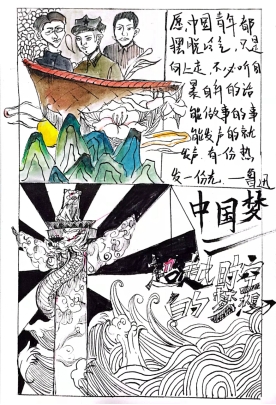 愿中国青年都
摆脱冷气,只是
向上走,不必听自
暴自弃的话
能做事的事
能发声的就
发声.有一份热
发一份光.——鲁迅
中国梦